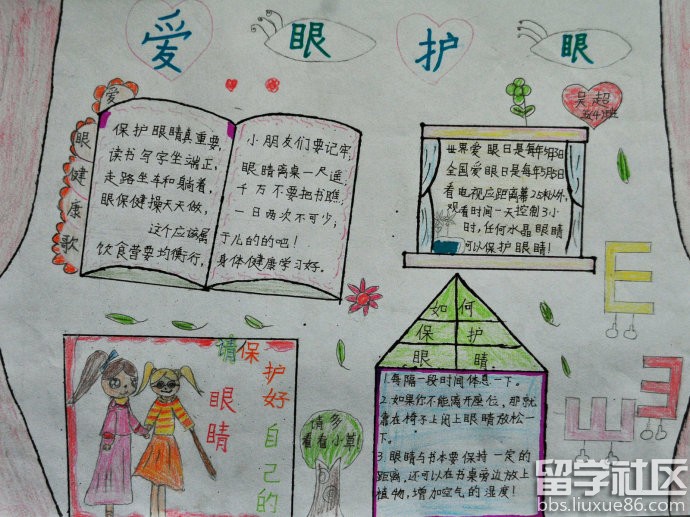 爱眼护眼
爱眼健康歌
保护眼睛真重要,
读书写字坐端正,
走路坐车和躺着,
眼保健操天天做,
这个应该属
饮食营要均衡行,
小朋友们要记牢,
眼睛离桌一尺遥,
千万不要把书瞧,
一日两次不可少,
于儿的的吧!
身体健康学习好。
吴超
五4班
世界爱眼日是每年
全国爱眼日是每年
看电视应距离幕2.5米以外,
观看时间一天控制3小
时,任何水晶眼睛
可以保护眼睛!
请保护好自己的
眼睛
请多
看看小草!
如何
保护
眼睛
1.每隔一段时间休息一下。
2.如果你不能离开座位,那就
靠在椅子上闭上眼睛放松一
下。
3.眼睛与书本要保持一定的
距离,还可以在书桌旁边放上
植物,增加空气的湿度!
E
E
E
留学社区
bbs.liuxue86.com